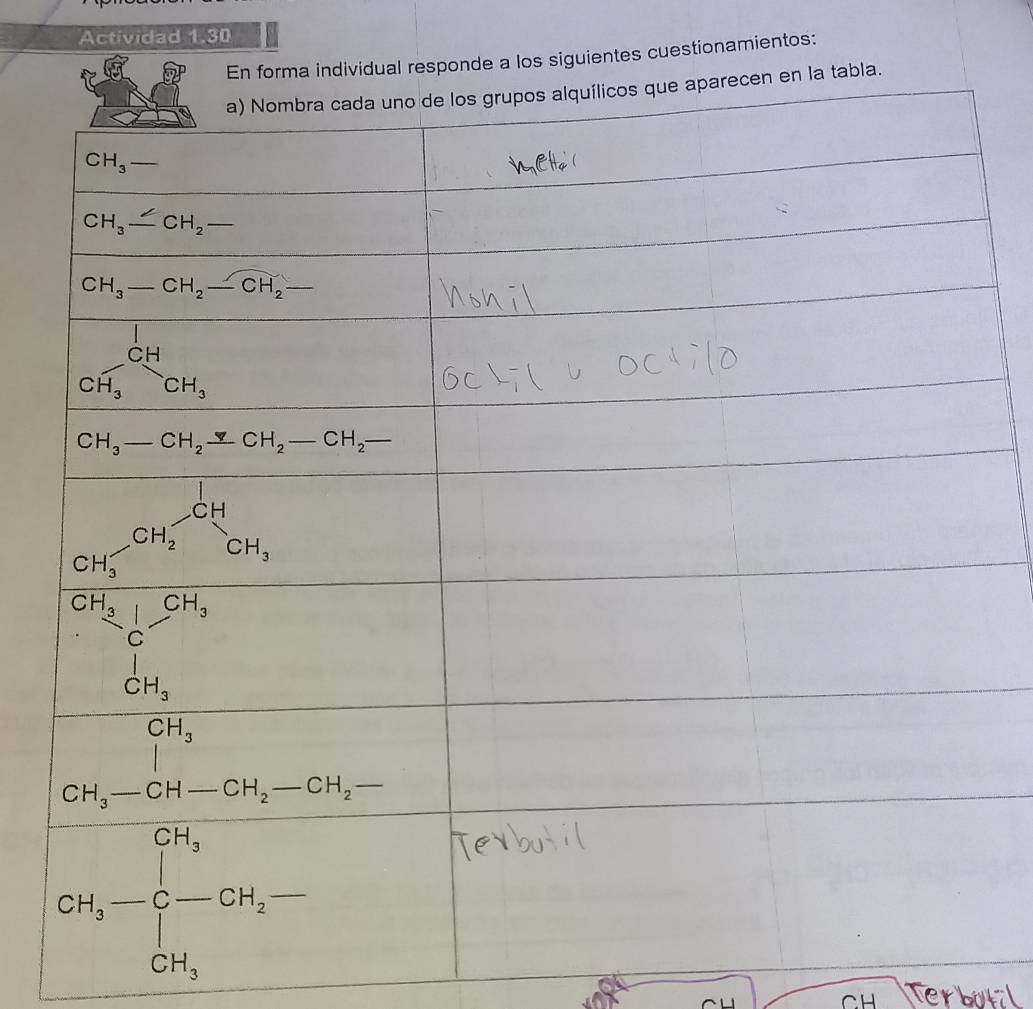 Actividad 1.30
En forma individual responde a los siguientes cuestionamientos:
a) Nombra cada uno de los grupos alquílicos que aparecen en la tabla.
CH₃— metil
CH₃—CH₂—
CH₃—CH₂—CH₂— nonil
CH
CH₃ CH₃
octil u octilo
CH₃—CH₂—CH₂—CH₂—
CH
CH₂
CH₃ CH₃
CH₃ CH₃
C
CH₃
CH₃
CH₃—CH—CH₂—CH₂—
CH₃
Terbutil
CH₃—C—CH₂—
CH₃
CH CH Terbutil